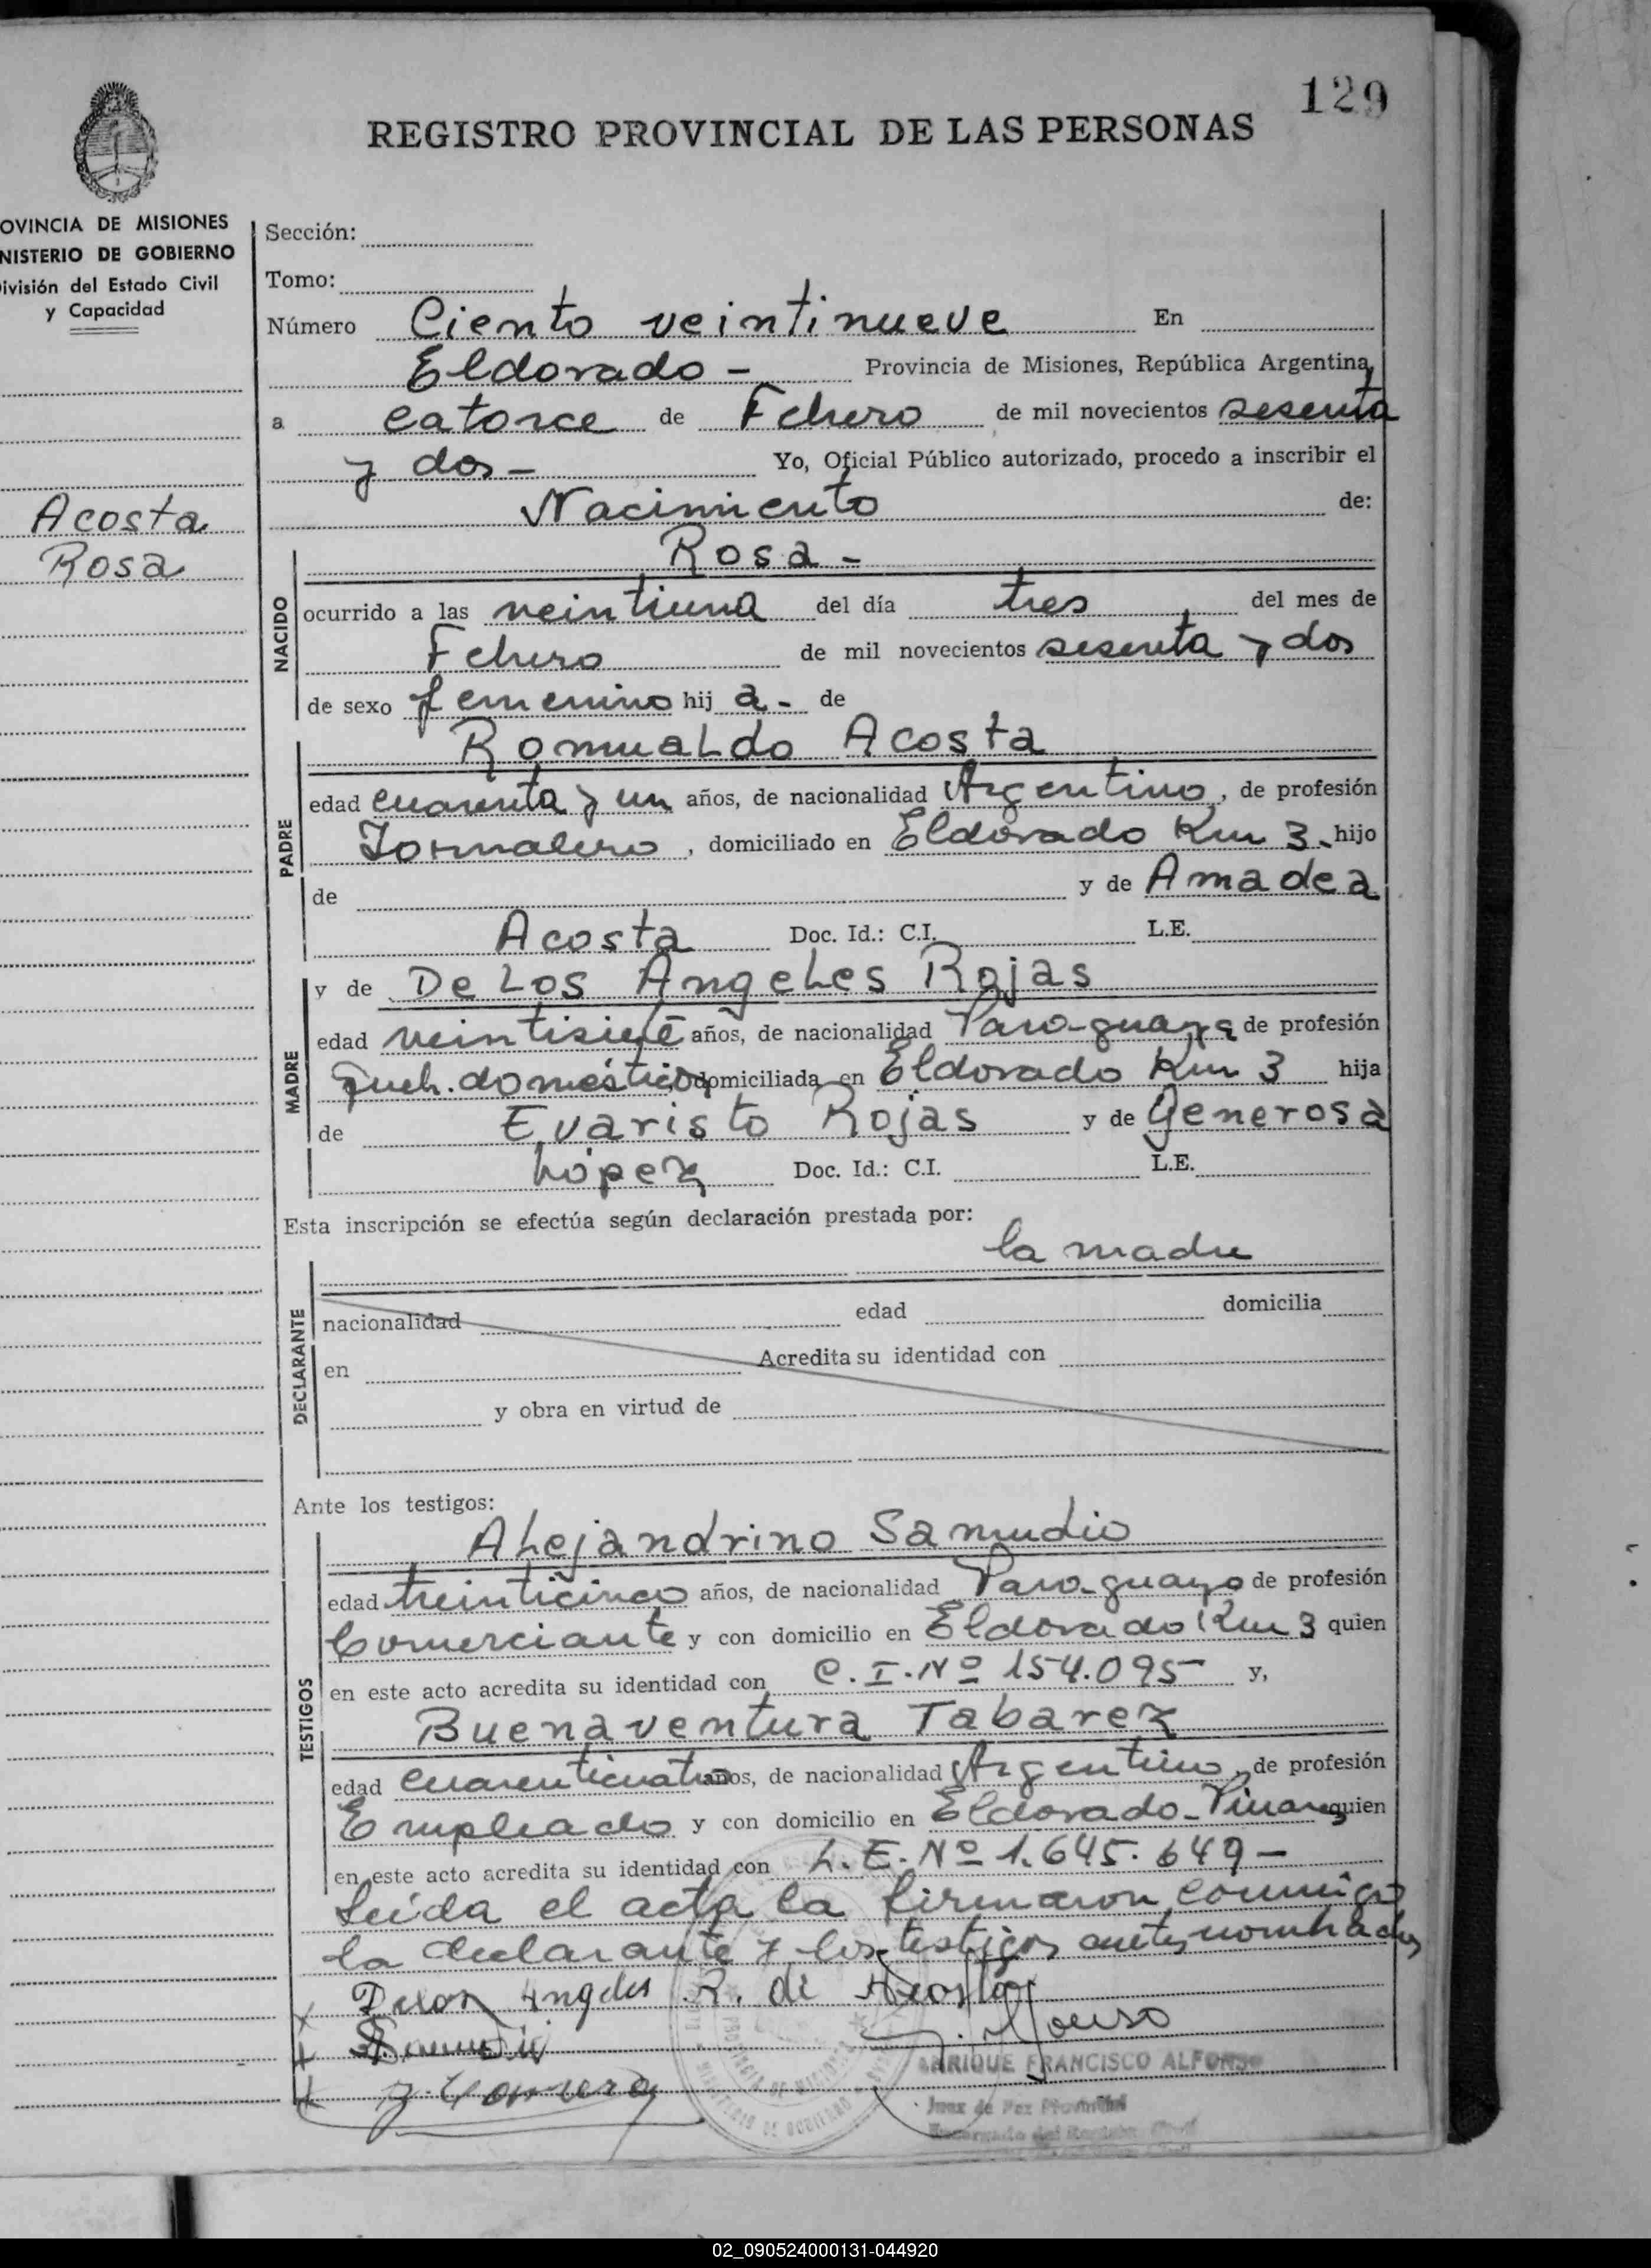 129
REGISTRO PROVINCIAL DE LAS PERSONAS
OVINCIA DE MISIONES
NISTERIO DE GOBIERNO
ivisión del Estado Civil
y Capacidad
Acosta
Rosa
Sección:
Tomo:
Número Ciento veintinueve En
Eldorado - Provincia de Misiones, República Argentina,
a catorce de Febrero de mil novecientos sesenta
y dos - Yo, Oficial Público autorizado, procedo a inscribir el
Nacimiento de:
NACIDO
Rosa -
ocurrido a las veintiuna del día tres del mes de
Febrero de mil novecientos sesenta y dos
de sexo femenino hij a - de
PADRE
Romualdo Acosta
edad cuarenta y un años, de nacionalidad Argentino, de profesión
Jornalero, domiciliado en Eldorado Km 3 - hijo
de y de Amadea
Acosta Doc. Id.: C.I. L.E.
MADRE
y de De Los Angeles Rojas
edad veintisiete años, de nacionalidad Paraguaya de profesión
Queh. domésticos domiciliada en Eldorado Km 3 hija
de Evaristo Rojas y de Generosa
López Doc. Id.: C.I. L.E.
Esta inscripción se efectúa según declaración prestada por:
la madre
DECLARANTE
nacionalidad edad domicilia
en Acredita su identidad con
y obra en virtud de
Ante los testigos:
TESTIGOS
Alejandrino Samudio
edad treinticinco años, de nacionalidad Paraguayo de profesión
Comerciante y con domicilio en Eldorado Km 3 quien
en este acto acredita su identidad con C.I. Nº 154.095 - y,
Buenaventura Tabarez
edad cuarenticuatro años, de nacionalidad Argentino, de profesión
Empleado y con domicilio en Eldorado - Pinares quien
en este acto acredita su identidad con L.E. Nº 1.645.649 -
Leída el acta la firmaron conmigo
la declarante y los testigos antes nombrados
Delos Angeles R. de Acosta
ENRIQUE FRANCISCO ALFONSO
Juez de Paz Provincial
Encargado del Registro Civil
02_090524000131-044920